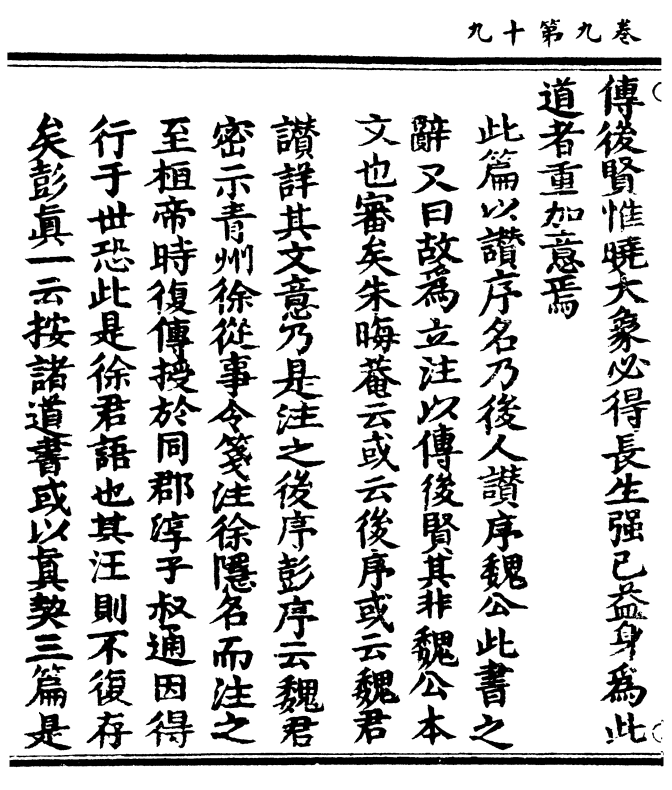 卷九第十九
傳後賢惟曉大象必得長生强己益身爲此
道者重加意焉
此篇以讃序名乃後人讃序魏公此書之
辭又曰故爲立注以傳後賢其非魏公本
文也審矣朱晦菴云或云後序或云魏君
讃詳其文意乃是注之後序彭序云魏君
密示青州徐從事令箋注徐隱名而注之
至桓帝時復傳授於同郡淳于叔通因得
行于世恐此是徐君語也其注則不復存
矣彭眞一云按諸道書或以眞契三篇是